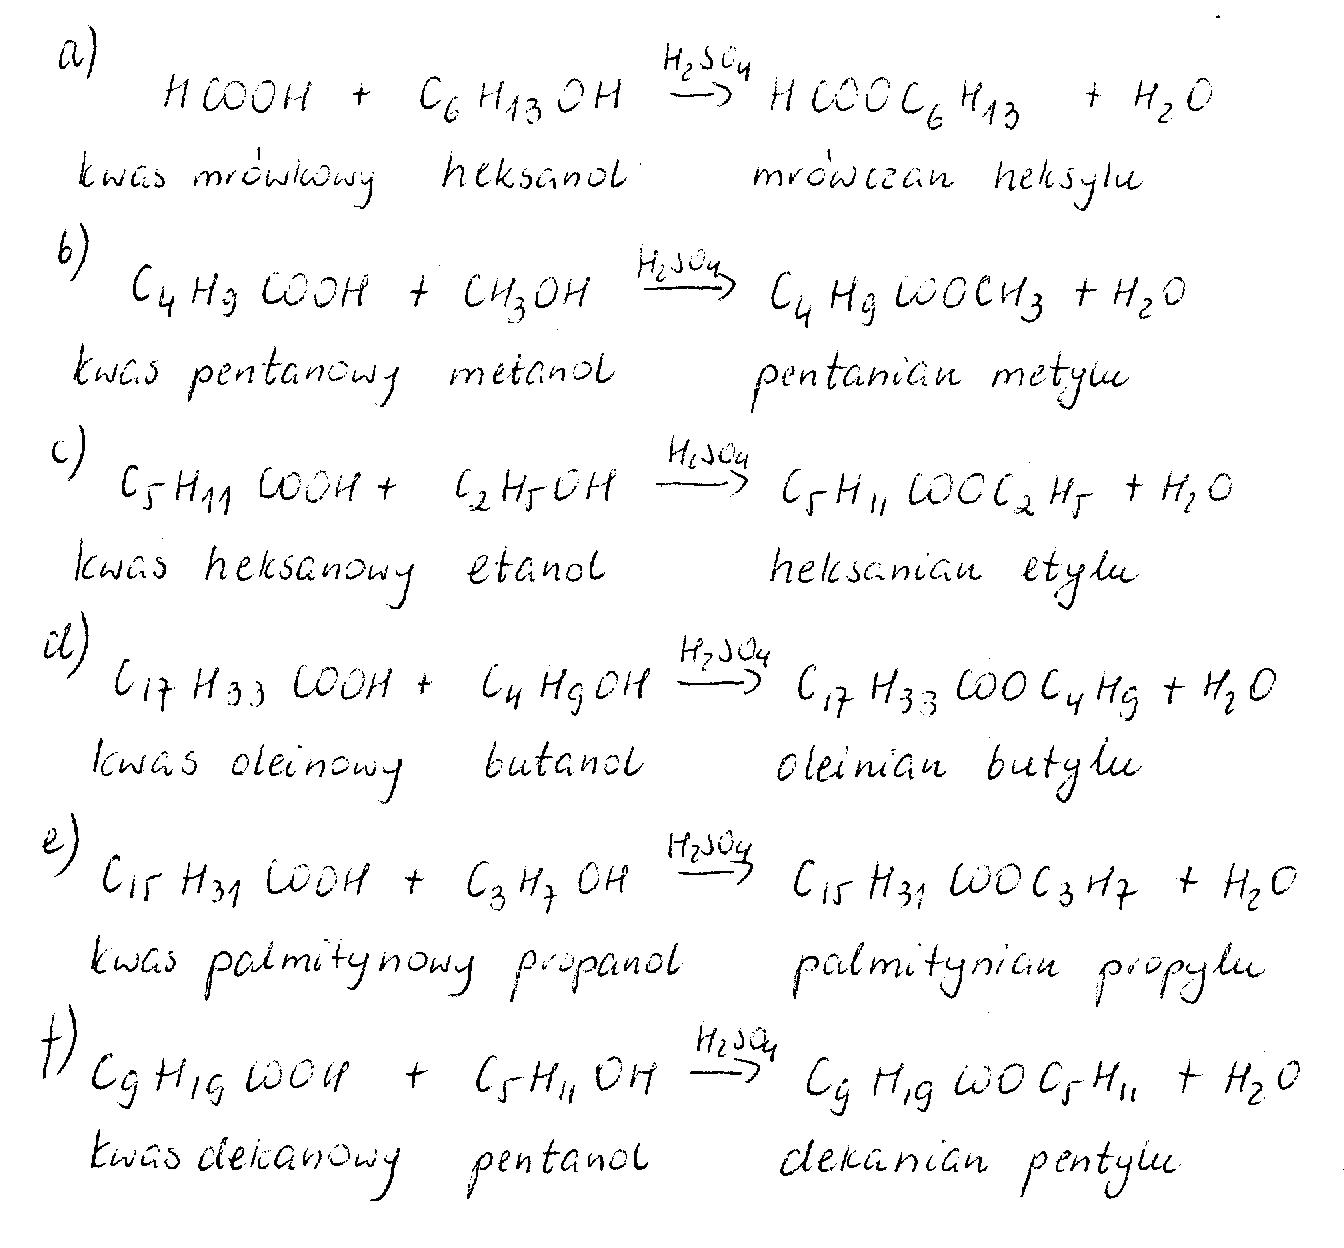 a)
H₂SO₄
HCOOH + C₆H₁₃OH → HCOOC₆H₁₃ + H₂O
kwas mrówkowy heksanol mrówczan heksylu
b)
H₂SO₄
C₄H₉COOH + CH₃OH → C₄H₉COOCH₃ + H₂O
kwas pentanowy metanol pentanian metylu
c)
H₂SO₄
C₅H₁₁COOH + C₂H₅OH → C₅H₁₁COOC₂H₅ + H₂O
kwas heksanowy etanol heksanian etylu
d)
H₂SO₄
C₁₇H₃₃COOH + C₄H₉OH → C₁₇H₃₃COOC₄H₉ + H₂O
kwas oleinowy butanol oleinian butylu
e)
H₂SO₄
C₁₅H₃₁COOH + C₃H₇OH → C₁₅H₃₁COOC₃H₇ + H₂O
kwas palmitynowy propanol palmitynian propylu
f)
H₂SO₄
C₉H₁₉COOH + C₅H₁₁OH → C₉H₁₉COOC₅H₁₁ + H₂O
kwas dekanowy pentanol dekanian pentylu